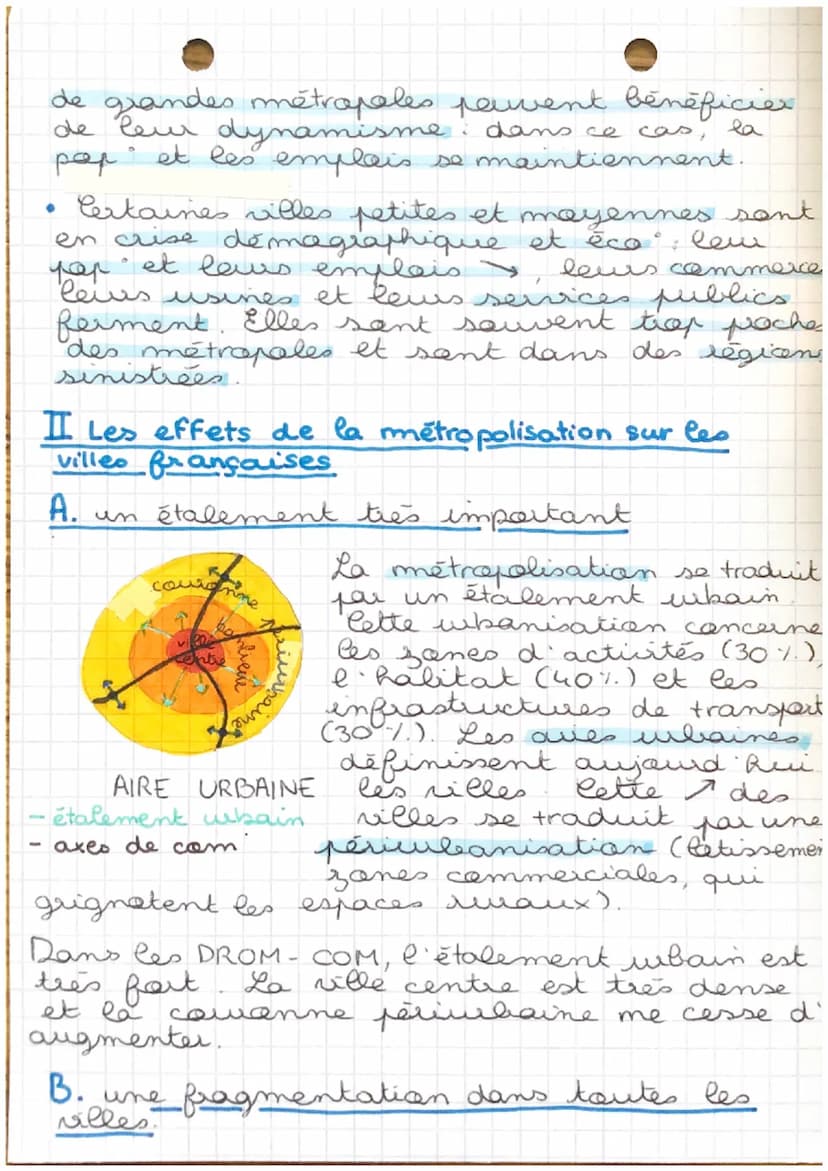 de grandes métropoles peuvent bénéficier
de leur dynamisme : dans ce cas, la
pop° et les emplois se maintiennent.
• Certaines villes petites et moyennes sont
en crise démographique et éco° : leur
pop° et leurs emplois ↘, leurs commerce
leurs usines et leurs services publics
ferment. Elles sont souvent trop proche
des métropoles et sont dans des région
sinistrées.
II Les effets de la métropolisation sur les
villes françaises
A. un étalement très important
couronne périurbaine
banlieue
ville
centre
La métropolisation se traduit
par un étalement urbain.
Cette urbanisation concerne
les zones d'activités (30%),
l'habitat (40%) et les
infrastructures de transport
(30%). Les aires urbaines
définissent aujourd'hui
AIRE URBAINE les villes. Cette ↗ des
- étalement urbain villes se traduit par une
- axes de com° périurbanisation (lotissemen
zones commerciales, qui
grignotent les espaces ruraux).
Dans les DROM-COM, l'étalement urbain est
très fort. La ville centre est très dense
et la couronne périurbaine ne cesse d'
augmenter.
B. une fragmentation dans toutes les
villes.